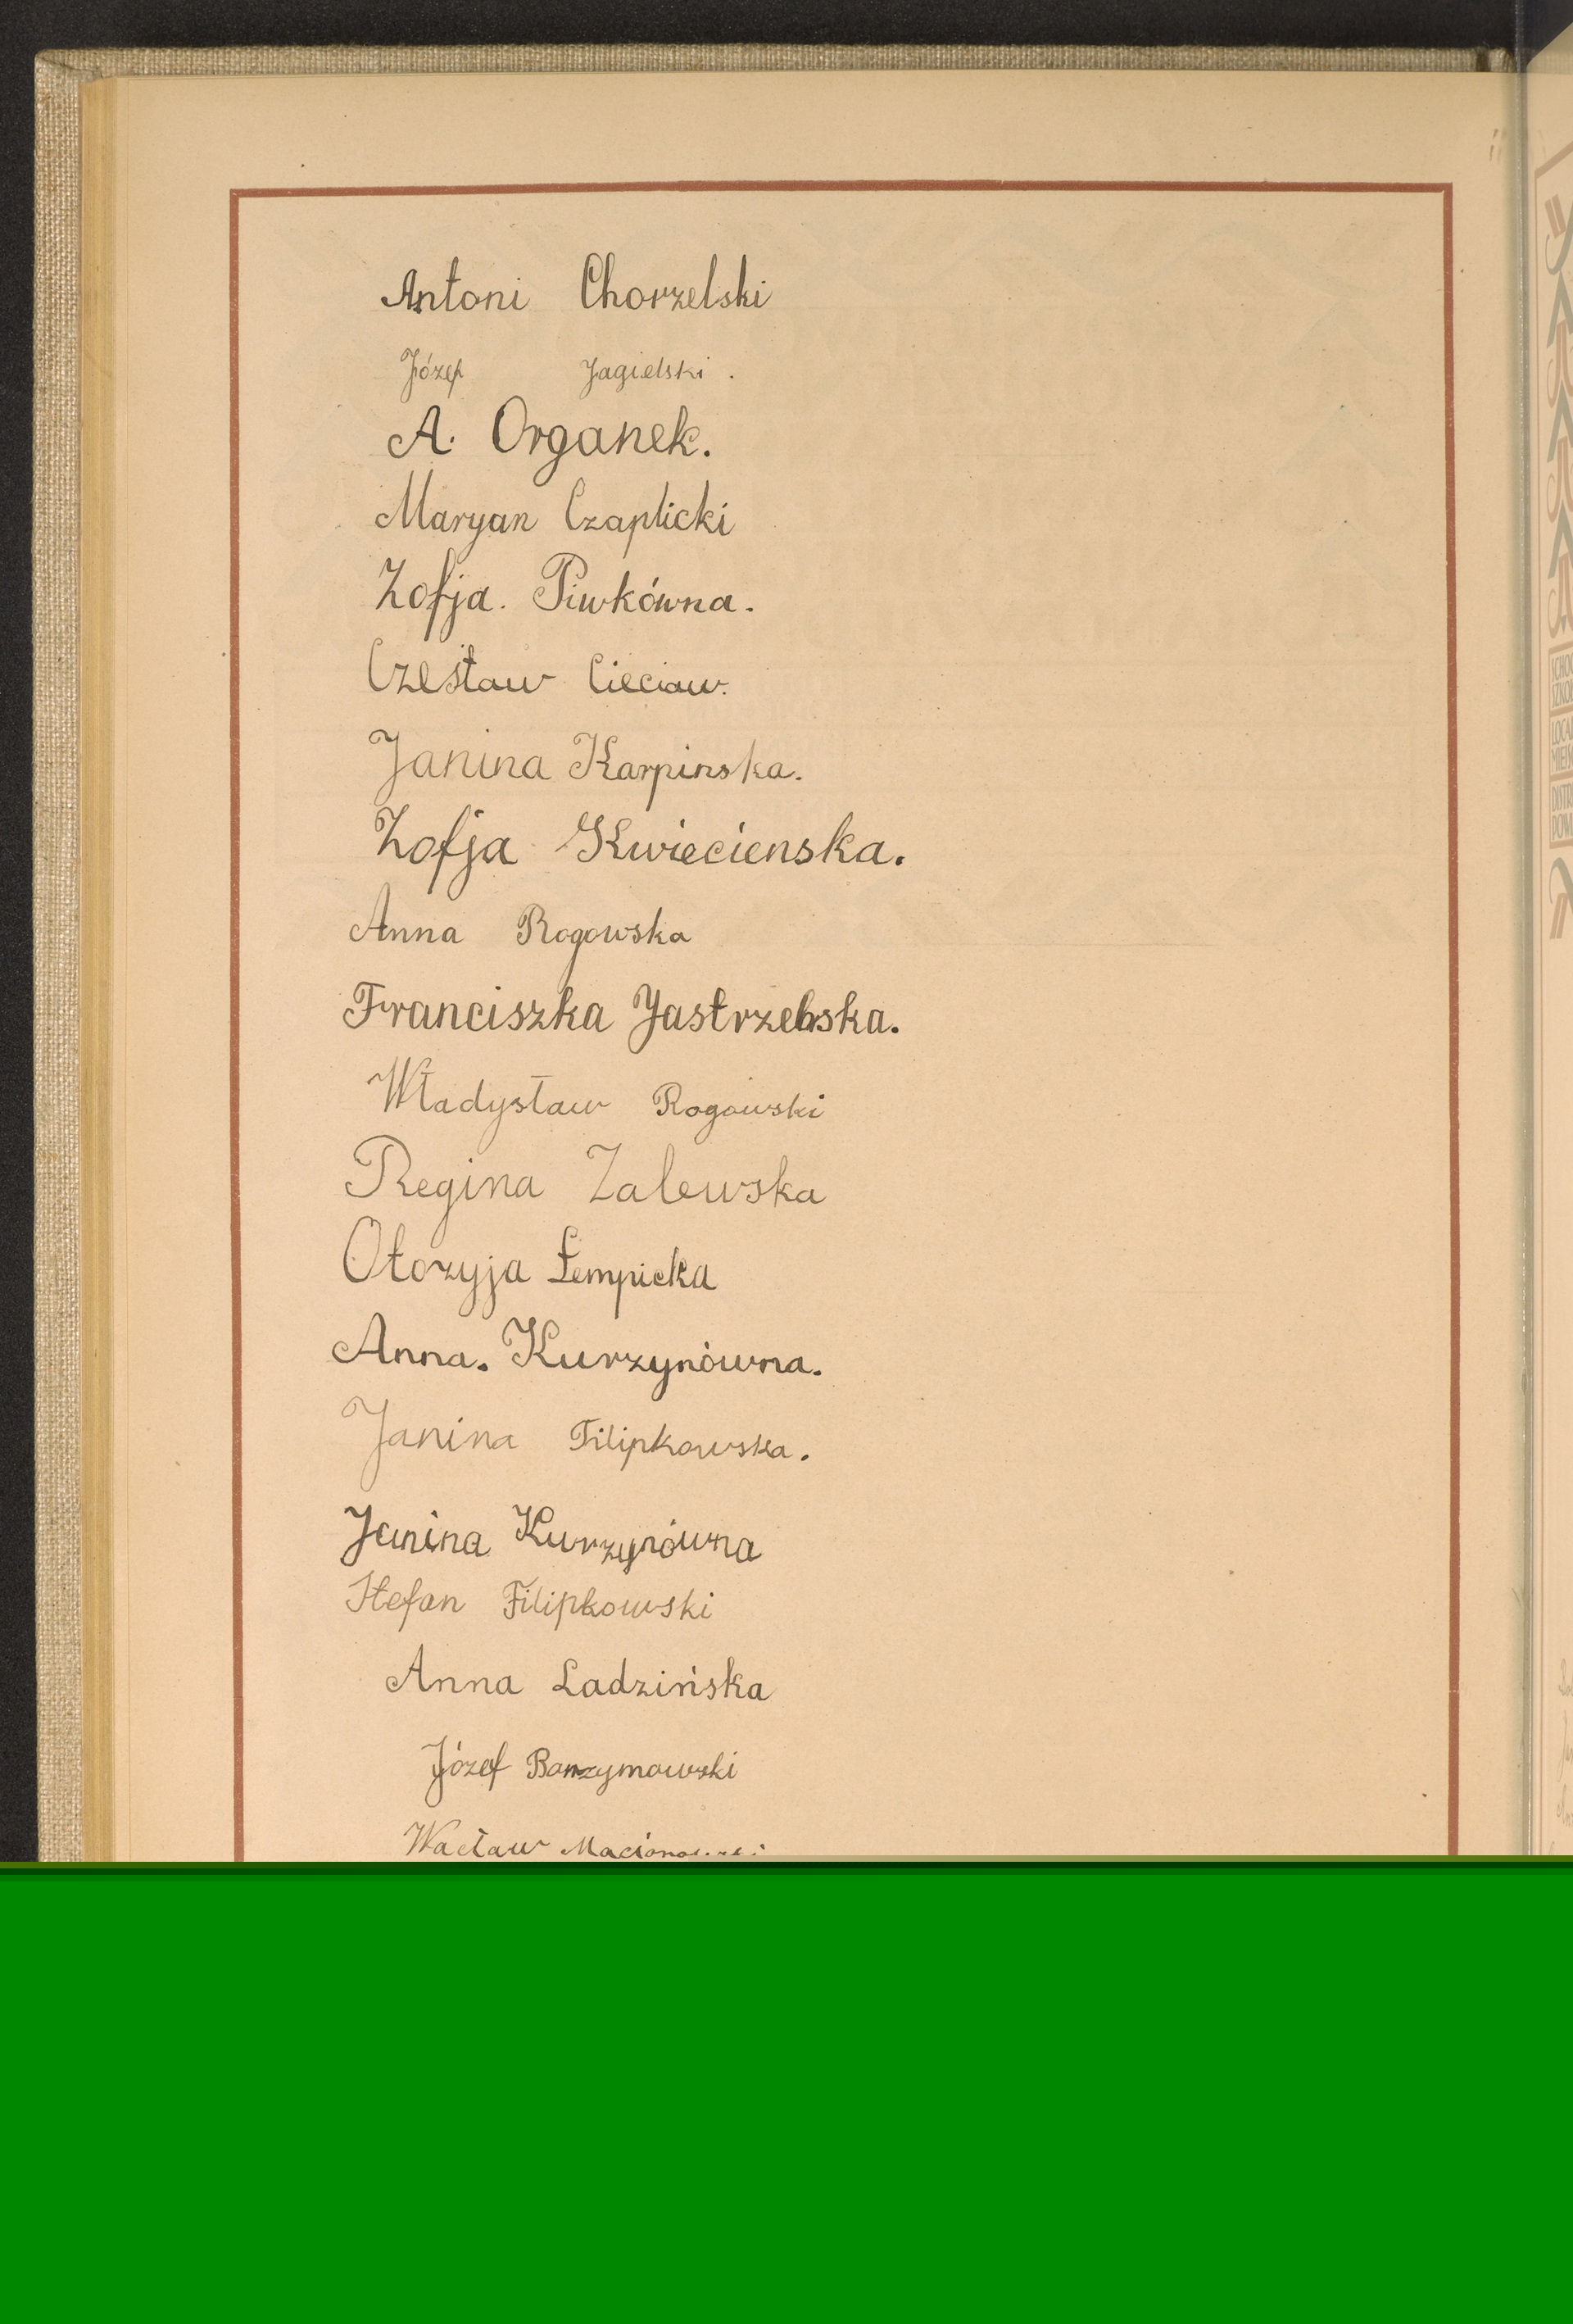 Antoni Chorzelski
Józef Jagielski.
A. Organek.
Maryan Czaplicki
Zofja. Piwkówna.
Czesław Cieciaw.
Janina Karpinska.
Zofja Kwiecienska.
Anna Rogowska
Franciszka Jastrzebska.
Władysław Rogowski
Regina Zalewska
Otozyja Łempicka
Anna. Kurzynówna.
Janina Filipkowska.
Janina Kurzynówna
Stefan Filipkowski
Anna Ladzińska
Józef
Wacław